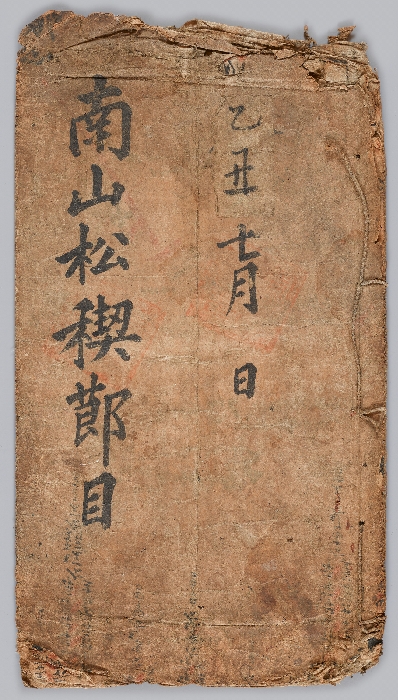 乙丑 七月 日
南山松稧節目